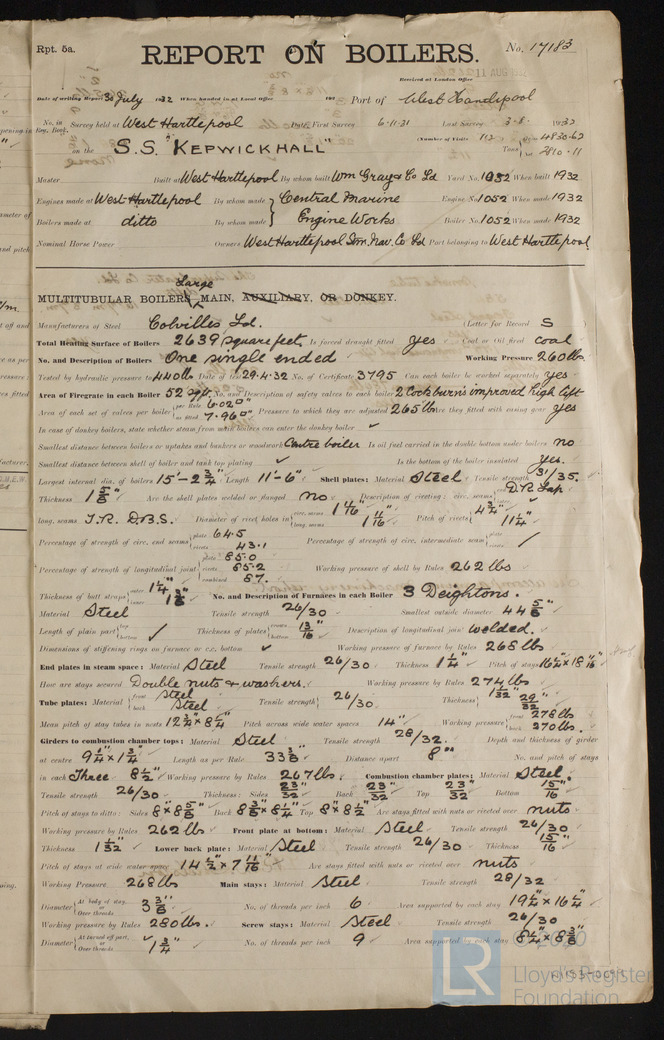 Rpt. 5a.
REPORT ON BOILERS.
No. 17183
Received at London Office 11 AUG
Date of writing Report 30 July 1932 When handed in at Local Office 193 Port of West Hartlepool
No. in Reg. Book. Survey held at West Hartlepool Date, First Survey 6.11.31 Last Survey 3.8. 1932
on the S.S. "KEPWICKHALL" (Number of Visits 112) Tons Gross 4830.62 Net 2810.11
Master Built at West Hartlepool By whom built Wm Gray & Co Ld Yard No. 1052 When built 1932
Engines made at West Hartlepool By whom made Central Marine Engine No. 1052 When made 1932
Boilers made at ditto By whom made Engine Works Boiler No. 1052 When made 1932
Nominal Horse Power Owners West Hartlepool Stm. Nav. Co Ld Port belonging to West Hartlepool
Large
MULTITUBULAR BOILERS MAIN, AUXILIARY, OR DONKEY.
Manufacturers of Steel Colvilles Ld. (Letter for Record S
Total Heating Surface of Boilers 2639 square feet Is forced draught fitted yes Coal or Oil fired coal
No. and Description of Boilers One single ended Working Pressure 260 lb
Tested by hydraulic pressure to 440 lb Date of test 29.4.32 No. of Certificate 3795 Can each boiler be worked separately yes
Area of Firegrate in each Boiler 52 sq ft. No. and Description of safety valves to each boiler 2 Cockburn's improved high lift
Area of each set of valves per boiler per Rule 6.020" as fitted 7.960" Pressure to which they are adjusted 265 lb Are they fitted with easing gear yes
In case of donkey boilers, state whether steam from main boilers can enter the donkey boiler ✓
Smallest distance between boilers or uptakes and bunkers or woodwork Centre boiler Is oil fuel carried in the double bottom under boilers no
Smallest distance between shell of boiler and tank top plating ✓ Is the bottom of the boiler insulated yes.
Largest internal dia. of boilers 15'-2 3/4" Length 11'-6" Shell plates: Material Steel Tensile strength 31/35.
Thickness 1 5/8" Are the shell plates welded or flanged no Description of riveting: circ. seams D.R. Lap ✓
long. seams T.R. D.B.S. Diameter of rivet holes in circ. seams 1 7/16" long. seams 1 11/16" Pitch of rivets 4 3/4" 11 1/4"
Percentage of strength of circ. end seams plate 64.5 rivets 43.1 Percentage of strength of circ. intermediate seam plate rivets ✓
Percentage of strength of longitudinal joint plate 85.0 rivets 85.2 combined 87. Working pressure of shell by Rules 262 lbs
Thickness of butt straps outer 1 1/4" inner 1 3/8" No. and Description of Furnaces in each Boiler 3 Deightons.
Material Steel Tensile strength 26/30 Smallest outside diameter 44 5/8"
Length of plain part top bottom ✓ Thickness of plates crown bottom 13/16" Description of longitudinal joint welded.
Dimensions of stiffening rings on furnace or c.c. bottom ✓ Working pressure of furnace by Rules 268 lb
End plates in steam space: Material Steel Tensile strength 26/30 Thickness 1 1/4" Pitch of stays 16 1/4" x 18
How are stays secured Double nuts & washers. Working pressure by Rules 274 lbs
Tube plates: Material front Steel back Steel Tensile strength 26/30 Thickness 1 1/32" 29/32"
Mean pitch of stay tubes in nests 12 3/4" x 8 1/4" Pitch across wide water spaces 14" Working pressure front 278 lbs back 270 lbs.
Girders to combustion chamber tops: Material Steel Tensile strength 28/32. Depth and thickness of girder
at centre 9 1/4" x 1 3/4" Length as per Rule 33 3/8" Distance apart 8" No. and pitch of stays
in each Three 8 1/2" Working pressure by Rules 267 lbs. Combustion chamber plates: Material Steel.
Tensile strength 26/30 Thickness: Sides 23/32 Back 23/32 Top 23/32 Bottom 15/16"
Pitch of stays to ditto: Sides 8" x 8 5/8" Back 8 3/8" x 8 1/4" Top 8" x 8 1/2" Are stays fitted with nuts or riveted over nuts
Working pressure by Rules 262 lb Front plate at bottom: Material Steel Tensile strength 26/30
Thickness 1 1/32" Lower back plate: Material Steel Tensile strength 26/30 Thickness 15/16"
Pitch of stays at wide water space 14 1/2" x 7 11/16" Are stays fitted with nuts or riveted over nuts
Working Pressure 268 lb Main stays: Material Steel Tensile strength 28/32
Diameter At body of stay, or Over threads 3 3/8" No. of threads per inch 6 Area supported by each stay 19 1/4" x 16 1/4"
Working pressure by Rules 280 lbs. Screw stays: Material Steel Tensile strength 26/30
Diameter At turned off part, or Over threads ✓ 1 3/4" No. of threads per inch 9 Area supported by each stay 8 1/4" x 8 3/8"
© 2020
LR
Lloyd's Register
Foundation